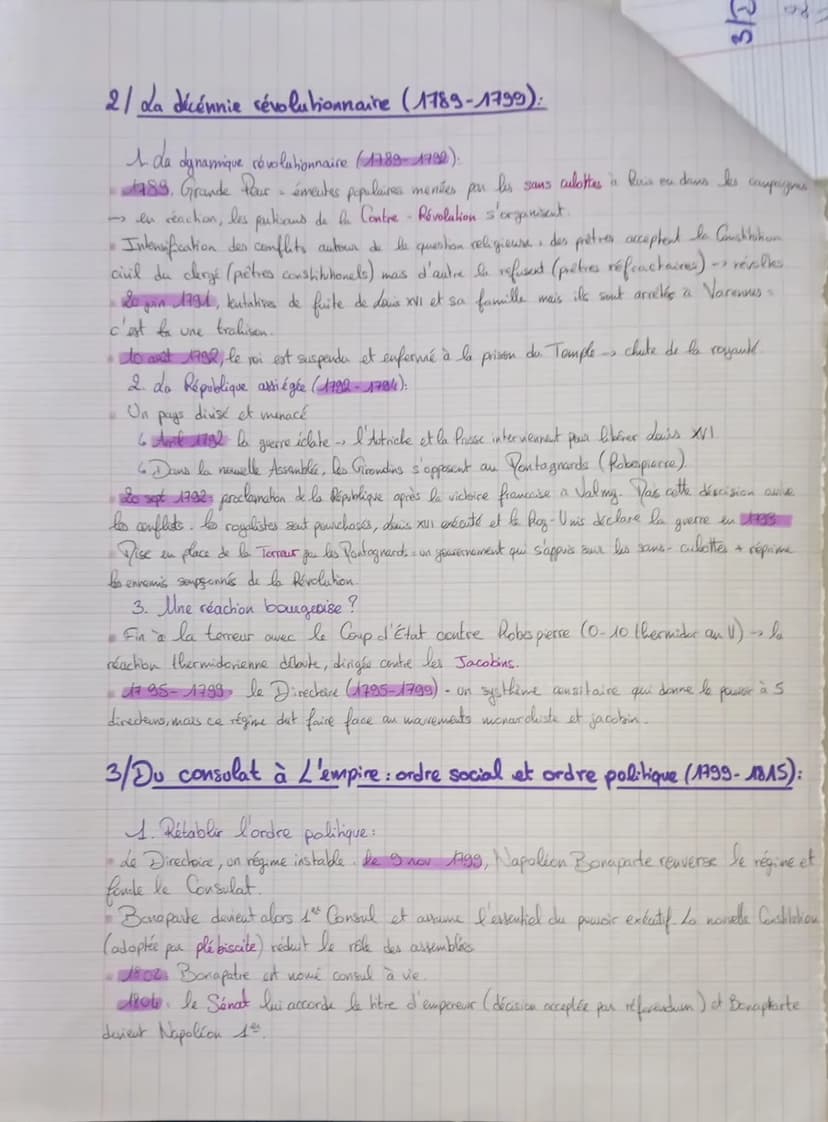 3/2
2/ La décénnie révolutionnaire (1789-1799):
1. La dynamique révolutionnaire (1789-1792):
1789, Grande Peur = émeutes populaires menées par les sans culottes à Paris ou dans les campagnes
→ en réaction, les partisans de la Contre-Révolution s'organisent.
Intensification des conflits autour de la question religieuse, des prêtres acceptent la Constitution
civil du clergé (prêtres constitutionnels) mais d'autre la refusent (prêtres réfractaires) → révoltes
20 juin 1791, tentatives de fuite de Louis XVI et sa famille mais ils sont arrêtés à Varennes =
c'est une trahison.
10 août 1792, le roi est suspendu et enfermé à la prison du Temple → chute de la royauté
2. La République assiégée (1792-1794):
Un pays divisé et menacé
Avril 1792 la guerre éclate → l'Autriche et la Prusse interviennent pour libérer Louis XVI
Dans la nouvelle Assemblée, les Girondins s'opposent au Montagnards (Robespierre).
20 sept 1792, proclamation de la République après la victoire française à Valmy. Mais cette décision
les conflits. les royalistes sont pourchassés, Louis XVI exécuté et le Roy-Unis déclare la guerre en 1793
Mise en place de la Terreur par les Montagnards = un gouvernement qui s'appuis sur les sans-culottes + réprime
les ennemis soupçonnés de la Révolution.
3. Une réaction bourgeoise?
Fin à la terreur avec le Coup d'État contre Robespierre (9-10 thermidor an II) → la
réaction thermidorienne débute, dirigée contre les Jacobins.
1795-1799, le Directoire (1795-1799) - un système censitaire qui donne le pouvoir à 5
directeurs, mais ce régime doit faire face au mouvements monarchiste et jacobin.
3/ Du consulat à L'empire : ordre social et ordre politique (1799-1815):
1. Rétablir l'ordre politique:
Le Directoire, un régime instable. le 9 nov 1799, Napoléon Bonaparte renverse le régime et
fonde le Consulat.
Bonaparte devient alors 1er Consul et assume l'essentiel du pouvoir exécutif. La nouvelle Constitution
(adoptée par plébiscite) réduit le rôle des assemblées
1802, Bonapatre est nomé consul à vie.
1804, le Sénat lui accorde le titre d'empereur (décision acceptée par référendum) et Bonaparte
devient Napoléon 1er.